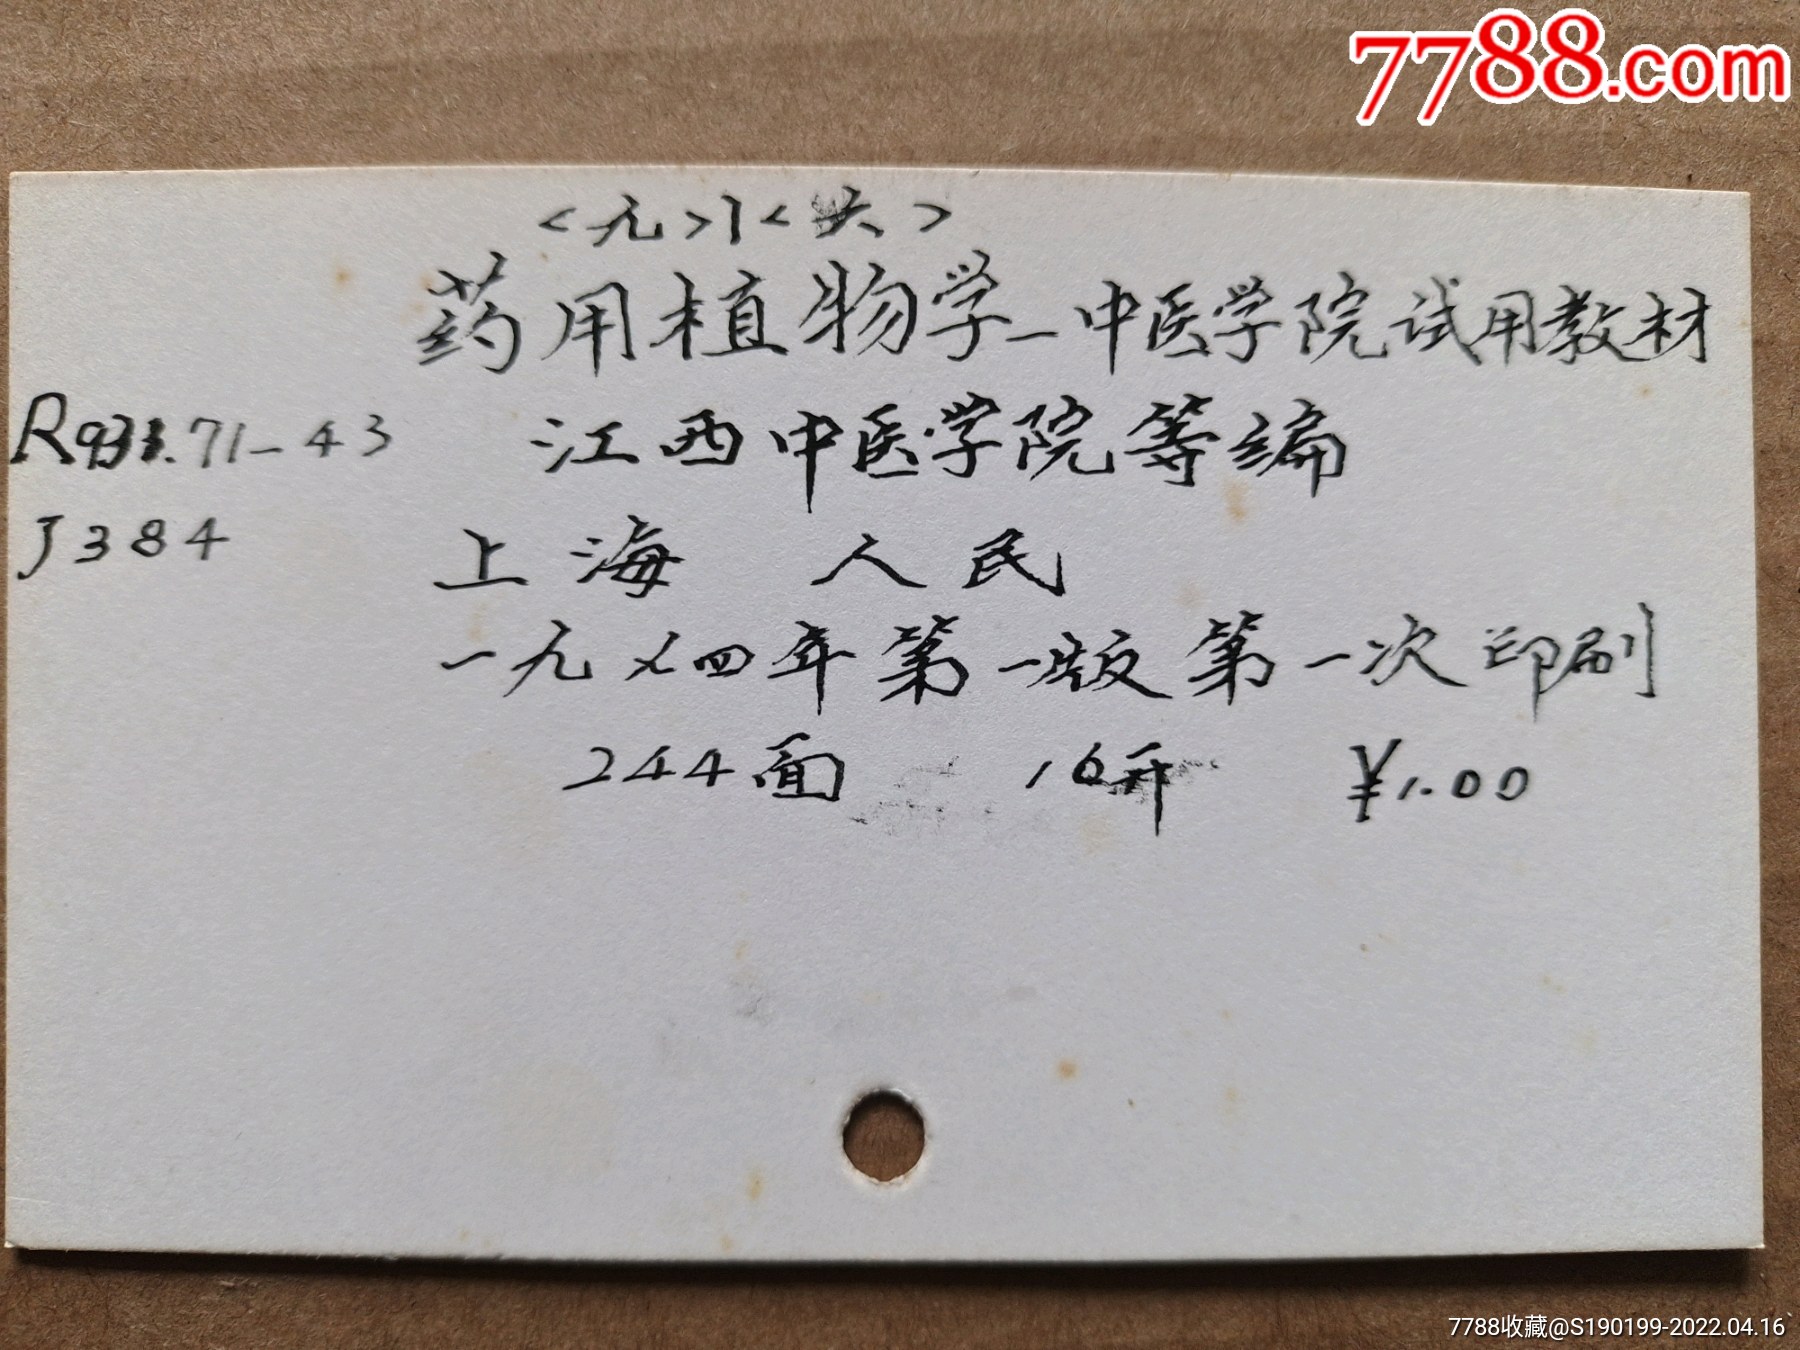 7788.com
<九>1<共>
药用植物学—中医学院试用教材
R931.71-43
江西中医学院等编
J384
上海 人民
一九七四年第一版第一次印刷
244面 16开 ¥1.00
7788收藏@S190199-2022.04.16